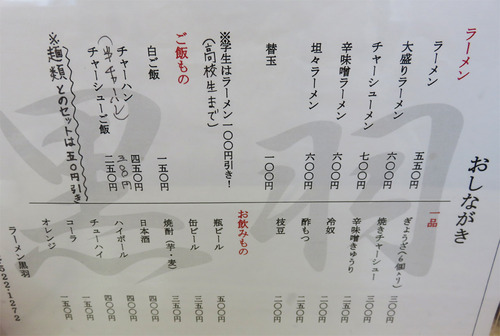 おしながき
ラーメン
ラーメン 五五〇円
大盛りラーメン 六〇〇円
チャーシューメン 七〇〇円
辛味噌ラーメン 六〇〇円
坦々ラーメン 六〇〇円
替玉 一〇〇円
※学生はラーメン一〇〇円引き！
（高校生まで）
ご飯もの
白ご飯 一五〇円
チャーハン 四五〇円
（半チャーハン） 三〇〇円
チャーシューご飯 二五〇円
※麺類とのセットは五〇円引き
一品
ぎょうざ（6個入り） 三〇〇円
焼きチャーシュー 三〇〇円
辛味噌きゅうり 二五〇円
冷奴 二〇〇円
酢もつ 二〇〇円
枝豆 二〇〇円
お飲みもの
瓶ビール 五〇〇円
缶ビール 三五〇円
焼酎（芋・麦） 三五〇円
日本酒 四〇〇円
ハイボール 四〇〇円
チューハイ 四〇〇円
コーラ 一五〇円
オレンジ 一五〇円
ラーメン黒羽
522-1272
黒羽